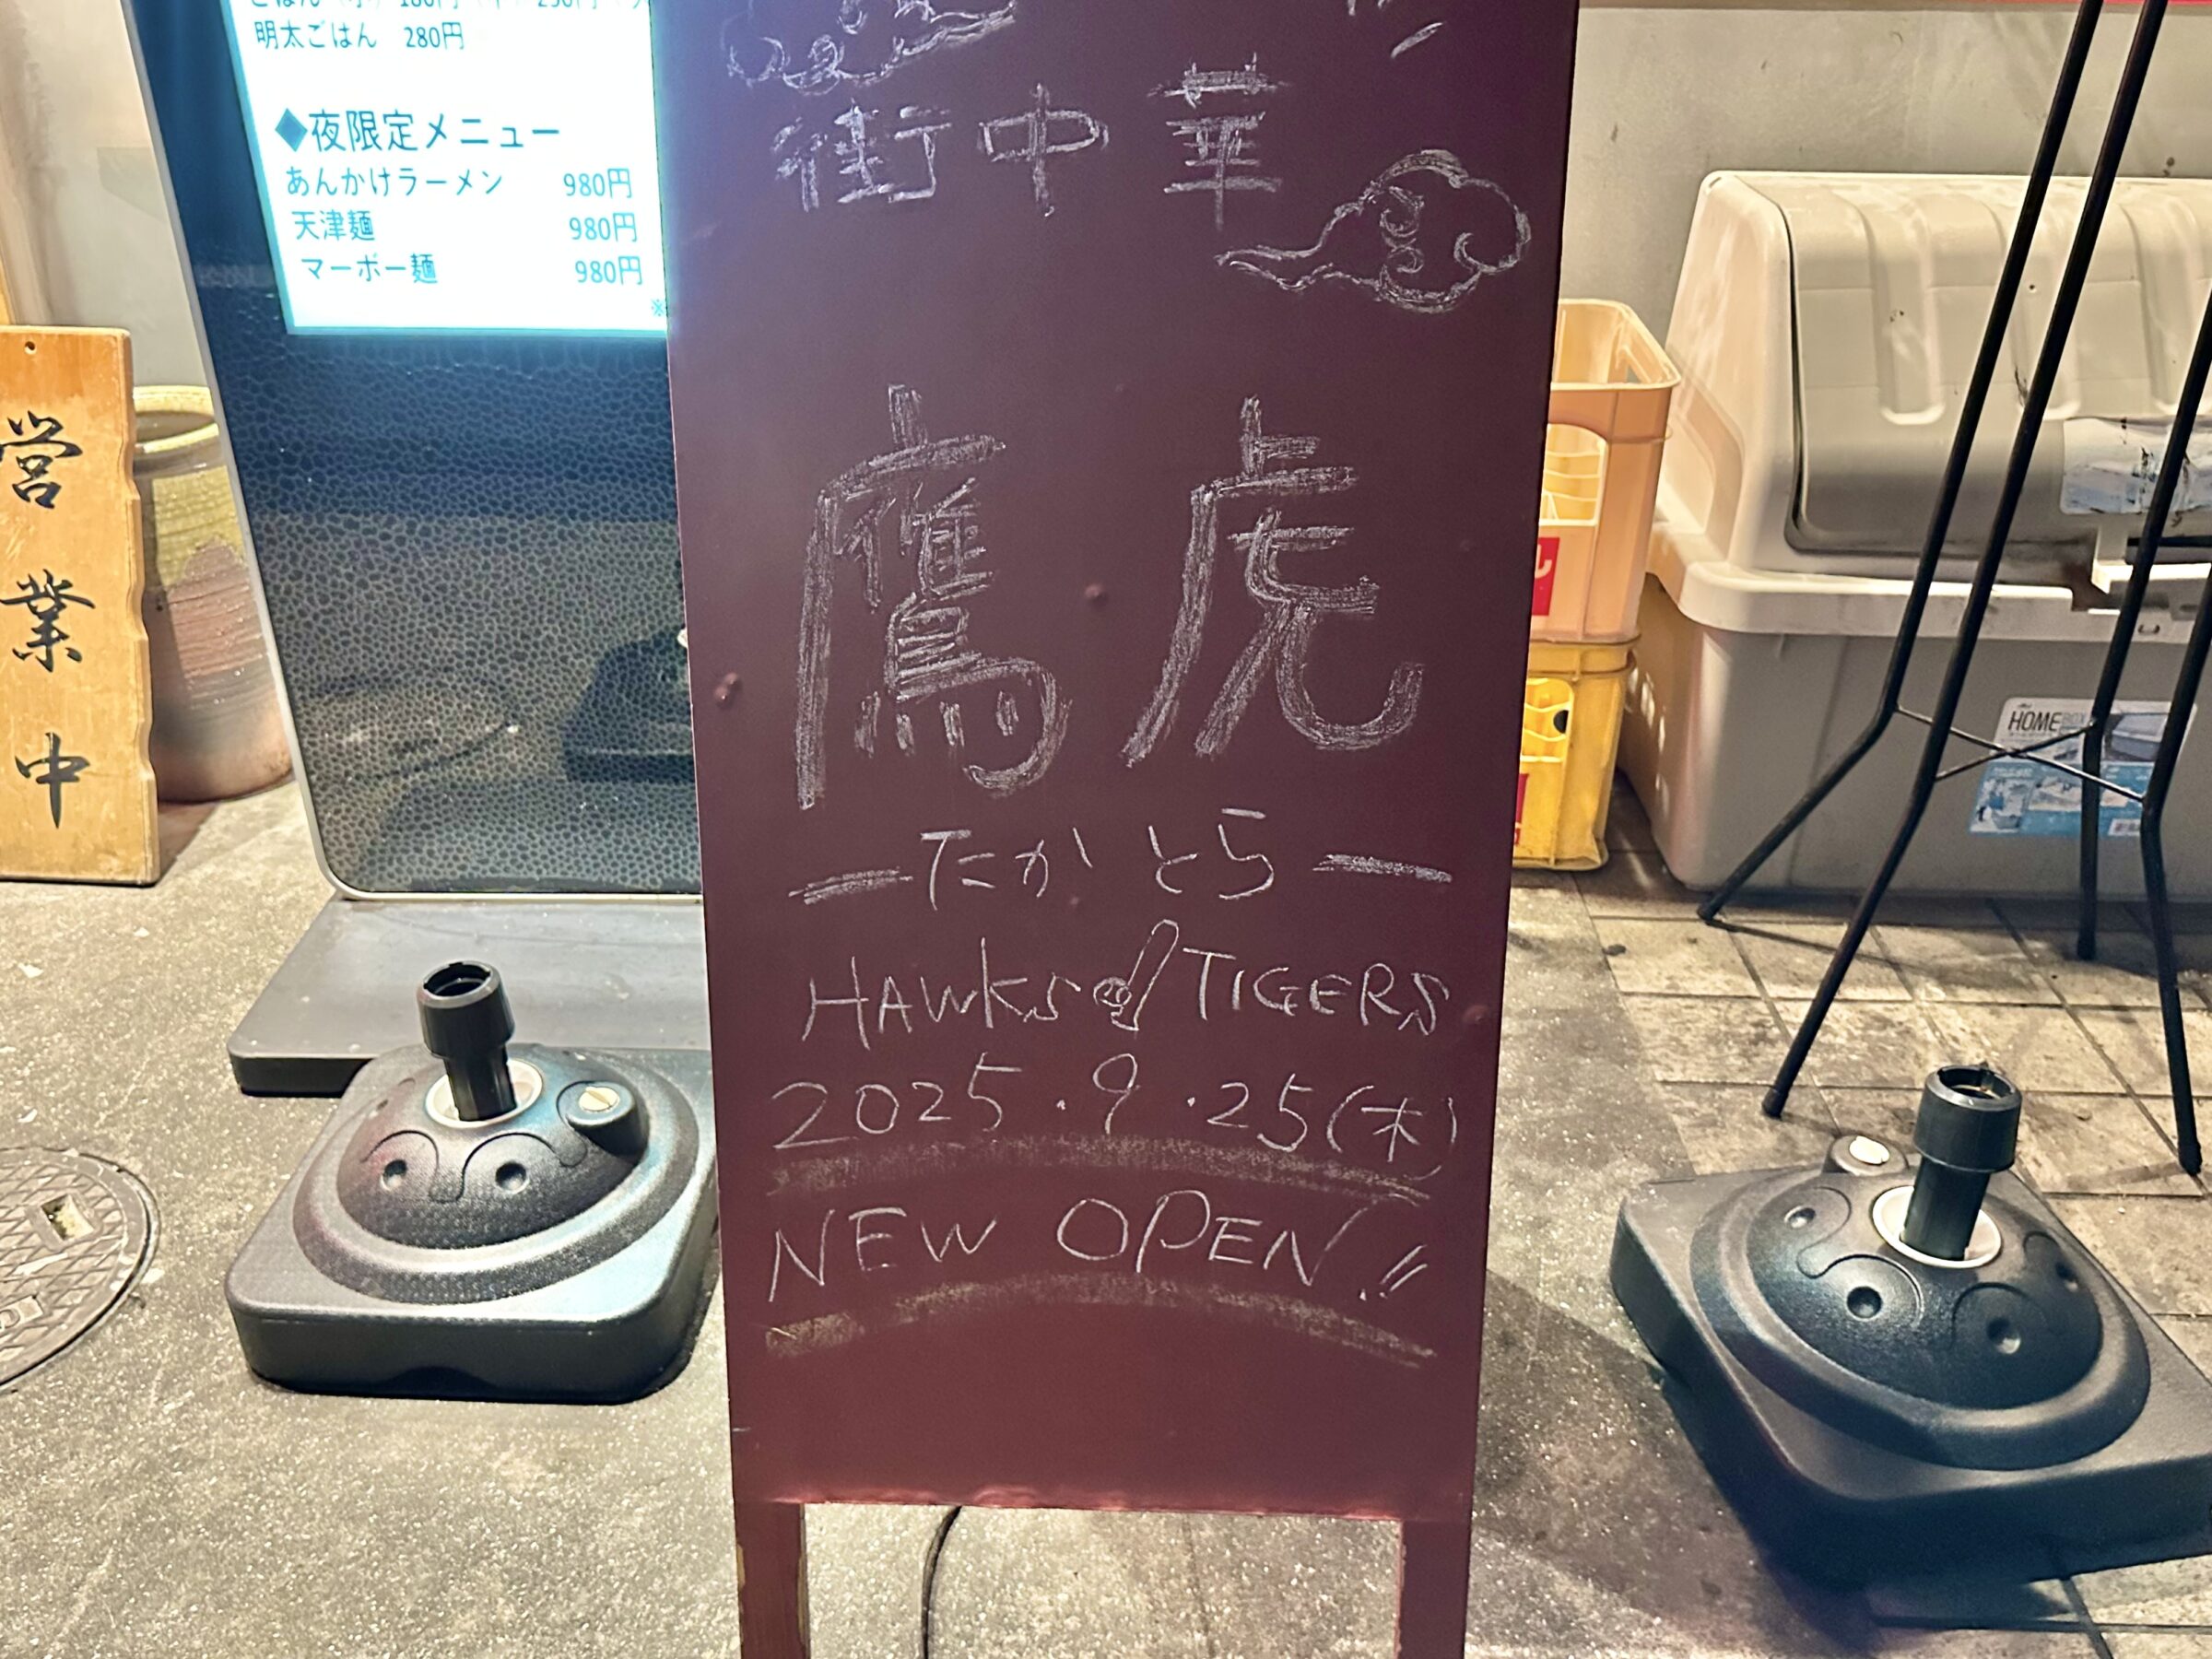 明太ごはん 280円
◆夜限定メニュー
あんかけラーメン 980円
天津麺 980円
マーボー麺 980円
※
営業中
街中華
鷹虎
ーたかとらー
HAWKS TIGERS
2025.9.25(木)
NEW OPEN!!
HOME BOX